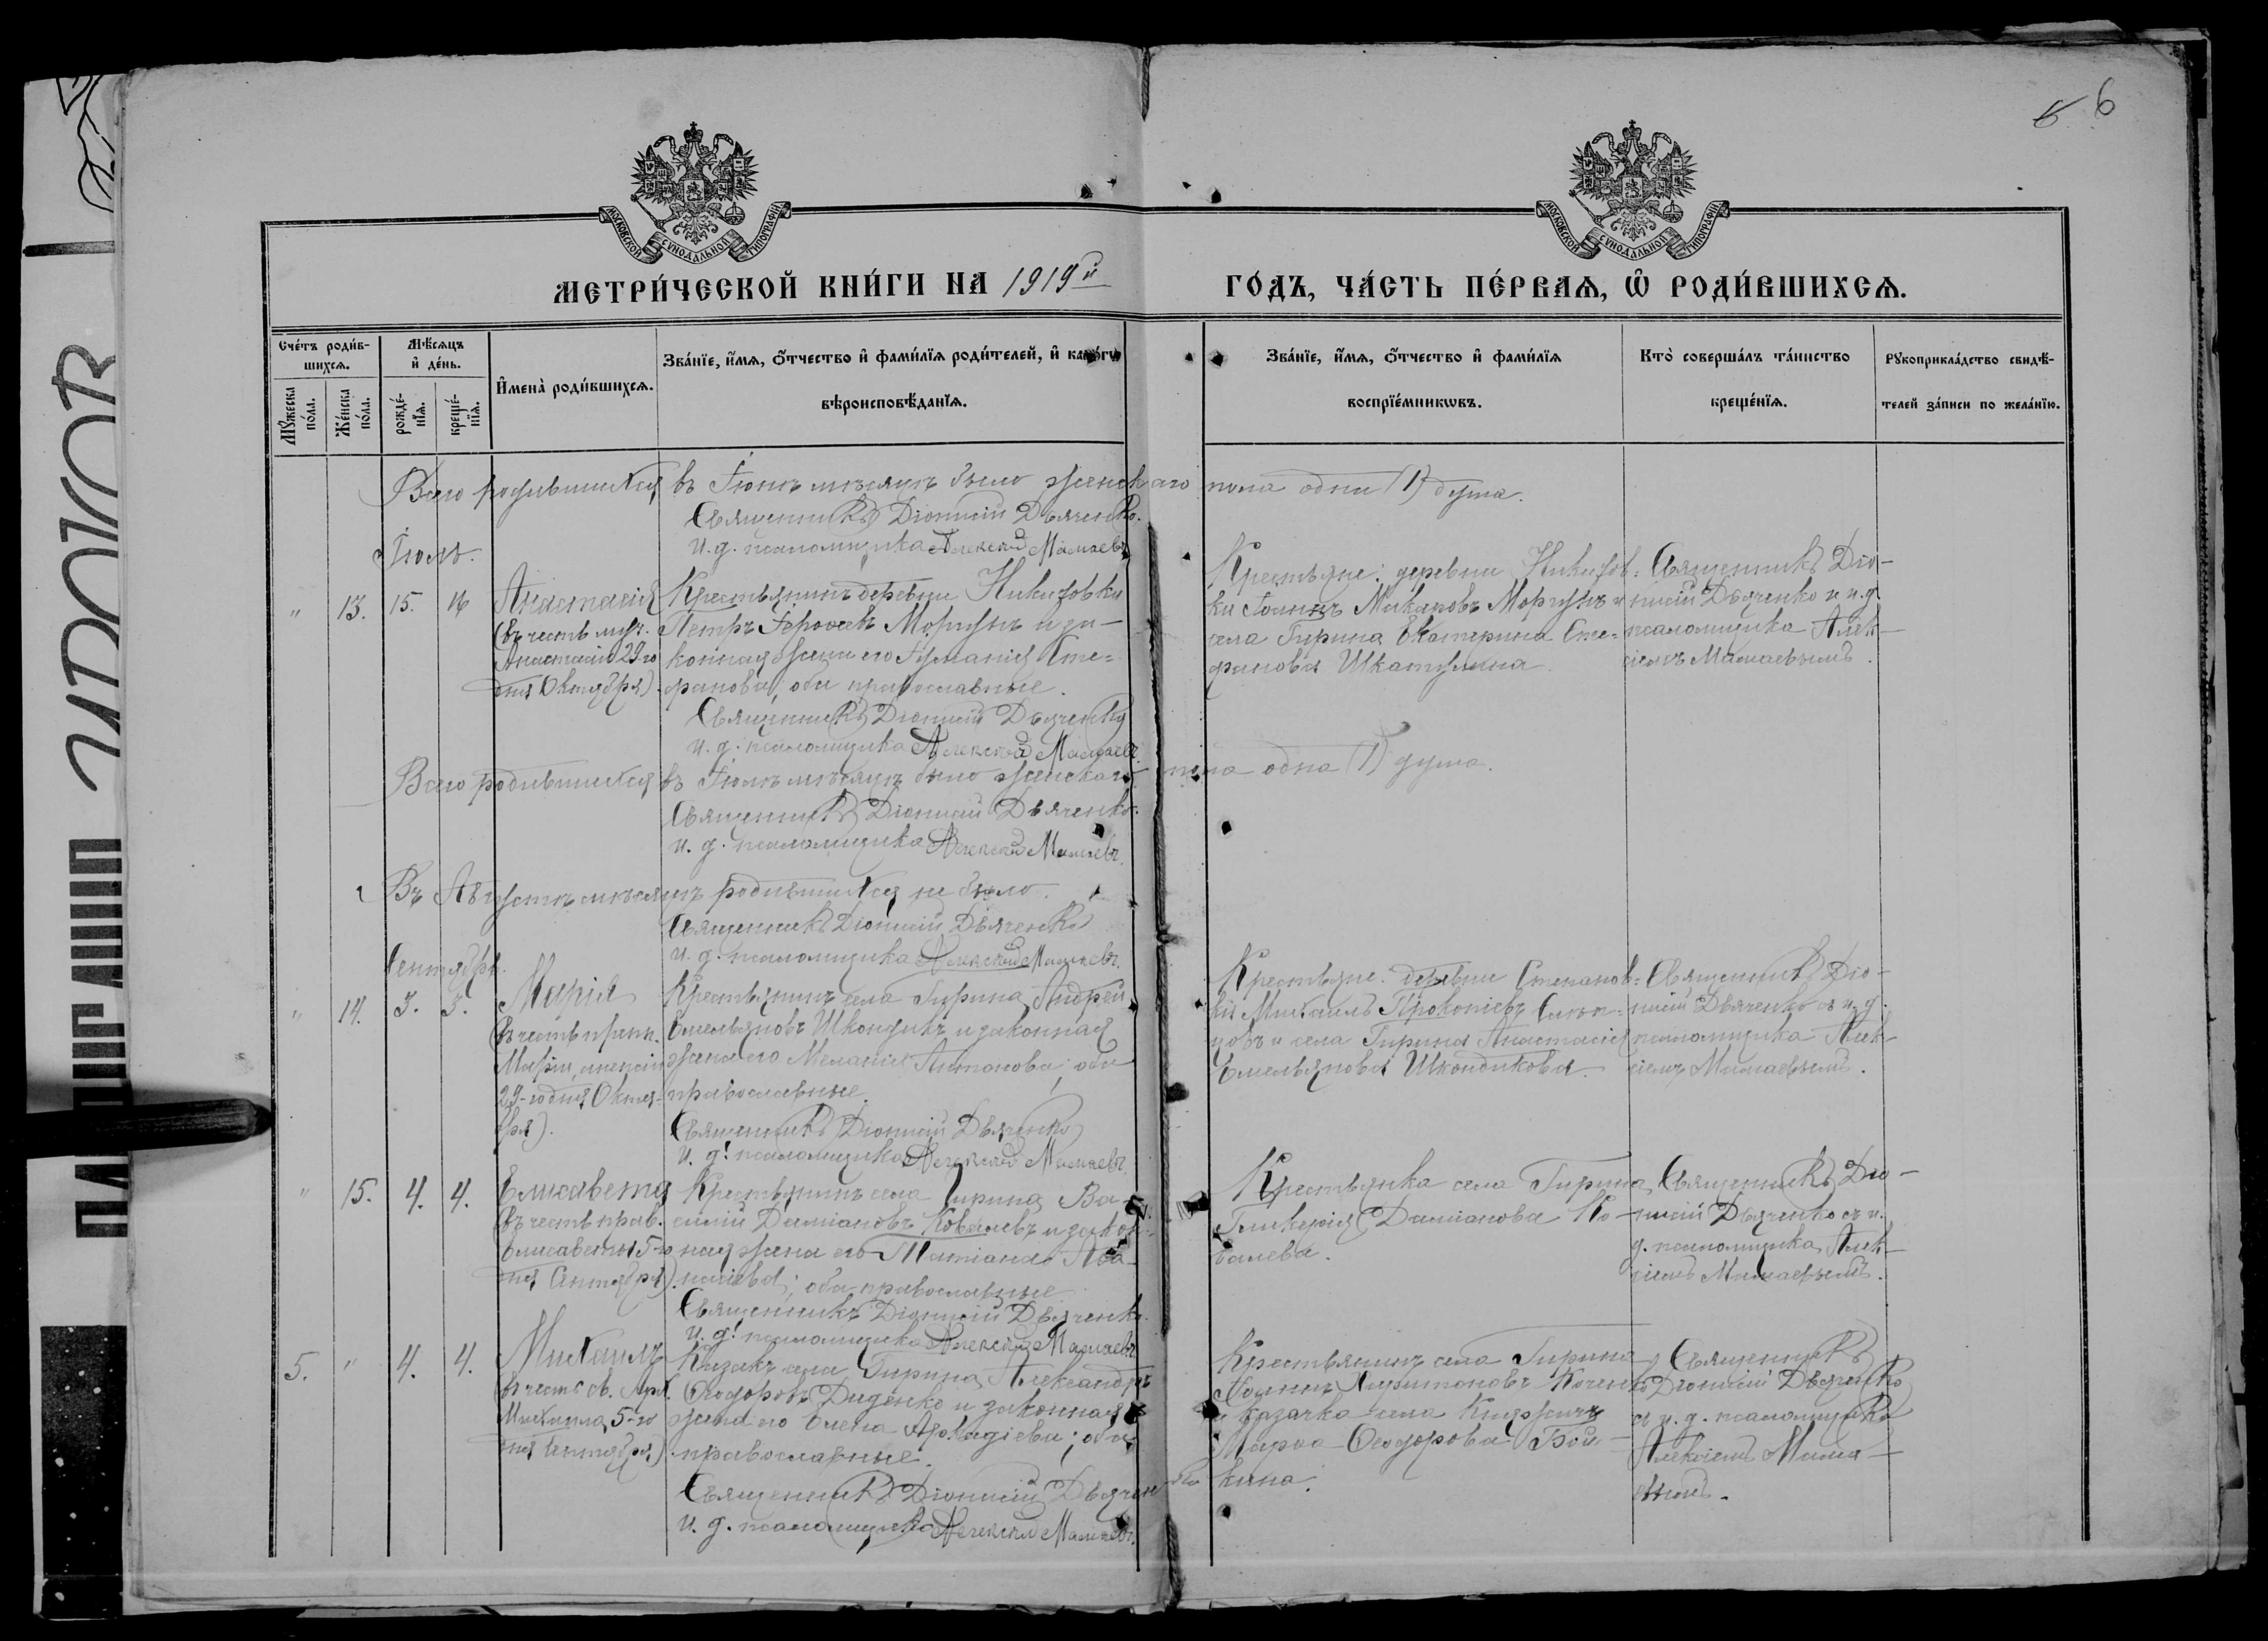 6 6
МОСКОВСКОЙ СѴНОДАЛЬНОЙ ТИПОГРАФІИ
МОСКОВСКОЙ СѴНОДАЛЬНОЙ ТИПОГРАФІИ
МЕТРИ́ЧЕСКОЙ КНИ́ГИ НА 1919й
ГО́ДЪ, ЧА́СТЬ ПЕ́РВАѦ, Ѽ РОДИ́ВШИХСѦ.
Сче́тъ роди́в-
шихсѧ.
Мꙋ́жеска по́ла.
Же́нска по́ла.
Мѣ́сѧцъ
и҆ де́нь.
рожде́-
нїѧ.
креще́-
нїѧ.
И҆мена̀ роди́вшихсѧ.
Зва́нїе, и҆́мѧ, ѻ҆́тчество и҆ фами́лїѧ роди́телей, и҆ како́гѡ
вѣроисповѣ́данїѧ.
Зва́нїе, и҆́мѧ, ѻ҆́тчество и҆ фами́лїѧ
воспрїе́мникѡвъ.
Кто̀ соверша́лъ та́инство
креще́нїѧ.
Рꙋкоприкла́дство свидѣ́-
телей за́писи по жела́нїю.
Всего родившихся въ Іюнѣ мѣсяцѣ было женскаго пола одна (1) душа.
Священникъ Діонисій Дьяченко.
и. д. псаломщика Алексѣй Мамаевъ
Іюль.
" 13. 15. 16
Анастасія
(въ честь муч.
Анастасіи 29-го
дня Октября).
Крестьянинъ деревни Никизовки
Петръ Моргунъ и за-
конная жена его Сте-
фанова, оба православные.
Священникъ Діонисій Дьяченко
и. д. псаломщика Алексѣй Мамаевъ.
Крестьяне: деревни Никизов-
ки Іоаннъ Макаровъ Моргунъ и
села Гирина Екатерина Сте-
фанова Шкатулина.
Священникъ Діо-
нисій Дьяченко и и. д.
псаломщика Алек-
сіемъ Мамаевымъ.
Всего родившихся въ Іюлѣ мѣсяцѣ было женскаго пола одна (1) душа.
Священникъ Діонисій Дьяченко.
и. д. псаломщика Алексѣй Мамаевъ.
Въ Августѣ мѣсяцѣ родившихся не было.
Священникъ Діонисій Дьяченко
и. д. псаломщика Алексѣй Мамаевъ.
Сентябрь.
" 14. 3. 3.
Марія
(въ честь преп.
Маріи,
29-го дня Октяб-
бря).
Крестьянинъ села Гирина Андрей
Емельяновъ Шкондикъ и законная
жена его Меланія Антонова; оба
православные.
Священникъ Діонисій Дьяченко
и. д. псаломщика Алексѣй Мамаевъ.
Крестьяне: деревни Степанов-
ки Михаилъ Прокопіевъ
и села Гирина Анастасія
Емельянова Шкондикова.
Священникъ Діо-
нисій Дьяченко съ и. д.
псаломщика Алек-
сіемъ Мамаевымъ.
" 15. 4. 4.
Елисавета
(въ честь прав.
Елисаветы 5-го
дня Сентября).
Крестьянинъ села Гирина Ва-
силій Даміановъ Ковалевъ и закон-
ная жена его Татіана Аѳа-
насіева; оба православные.
Священникъ Діонисій Дьяченко.
и. д. псаломщика Алексѣй Мамаевъ
Крестьянка села Гирина
Гликерія Даміанова Ко-
валева.
Священникъ Діо-
нисій Дьяченко съ и.
д. псаломщика Алек-
сіемъ Мамаевымъ.
5. " 4. 4.
Михаилъ
(въ честь св. Арх.
Михаила, 5-го
дня Сентября).
Казакъ села Гирина Александръ
Ѳеодоровъ Диденко и законная
жена его Елена Аркадіева; оба
православные.
Священникъ Діонисій Дьяченко
и. д. псаломщика Алексѣй Мамаевъ.
Крестьянинъ села Гирина
Іоаннъ Харитоновъ Коченко
и казачка села
Марѳа Ѳеодорова Бой-
кина.
Священникъ
Діонисій Дьяченко
съ и. д. псаломщика
Алексіемъ Мама-
евымъ.